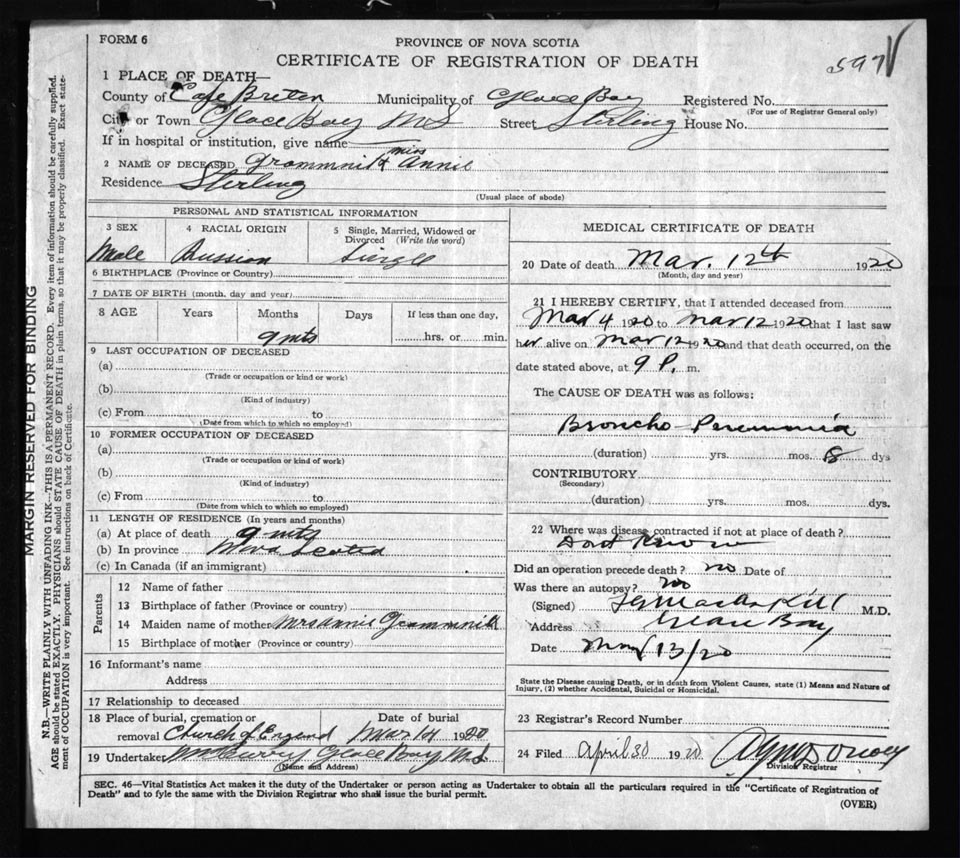 FORM 6
PROVINCE OF NOVA SCOTIA
CERTIFICATE OF REGISTRATION OF DEATH
597
1 PLACE OF DEATH—
County of Cape Breton Municipality of Glace Bay Registered No.
(For use of Registrar General only)
City or Town Glace Bay N S Street Sterling House No.
If in hospital or institution, give name
2 NAME OF DECEASED miss Annie
Residence Sterling
(Usual place of abode)
PERSONAL AND STATISTICAL INFORMATION
3 SEX 4 RACIAL ORIGIN 5 Single, Married, Widowed or Divorced (Write the word)
Male Russian Single
6 BIRTHPLACE (Province or Country)
7 DATE OF BIRTH (month, day and year)
8 AGE Years Months Days If less than one day,
9 mts hrs. or min.
9 LAST OCCUPATION OF DECEASED
(a)
(Trade or occupation or kind or work)
(b)
(Kind of industry)
(c) From to
(Date from which to which so employed)
10 FORMER OCCUPATION OF DECEASED
(a)
(Trade or occupation or kind of work)
(b)
(Kind of industry)
(c) From to
(Date from which to which so employed)
11 LENGTH OF RESIDENCE (In years and months)
(a) At place of death 9 mts
(b) In province Nova Scotia
(c) In Canada (if an immigrant)
Parents
12 Name of father
13 Birthplace of father (Province or country)
14 Maiden name of mother Mrs Annie
15 Birthplace of mother (Province or country)
16 Informant's name
Address
17 Relationship to deceased
18 Place of burial, cremation or Date of burial
removal Church of England Mar 14 1920
19 Undertaker Glace Bay N S
(Name and Address)
MEDICAL CERTIFICATE OF DEATH
20 Date of death Mar. 12th 1920
(Month, day and year)
21 I HEREBY CERTIFY, that I attended deceased from
Mar 4 1920 to Mar 12 1920 that I last saw
her alive on Mar 12 1920 and that death occurred, on the
date stated above, at 9 P. m.
The CAUSE OF DEATH was as follows:
Broncho Pneumonia
(duration) yrs. mos. 8 dys
CONTRIBUTORY
(Secondary)
(duration) yrs. mos. dys.
22 Where was disease contracted if not at place of death?
Dont Know
Did an operation precede death? no Date of
Was there an autopsy? no
(Signed) M.D.
Address Glace Bay
Date Mar 13/20
State the Disease causing Death, or in death from Violent Causes, state (1) Means and Nature of
Injury, (2) whether Accidental, Suicidal or Homicidal.
23 Registrar's Record Number
24 Filed April 30 1920
Division Registrar
SEC. 46—Vital Statistics Act makes it the duty of the Undertaker or person acting as Undertaker to obtain all the particulars required in the "Certificate of Registration of
Death" and to fyle the same with the Division Registrar who shall issue the burial permit.
(OVER)
MARGIN RESERVED FOR BINDING
N.B.—WRITE PLAINLY WITH UNFADING INK—THIS IS A PERMANENT RECORD. Every item of information should be carefully supplied.
AGE should be stated EXACTLY. PHYSICIANS should STATE CAUSE OF DEATH in plain terms, so that it may be properly classified. Exact state-
ment of OCCUPATION is very important. See instructions on back of Certificate.